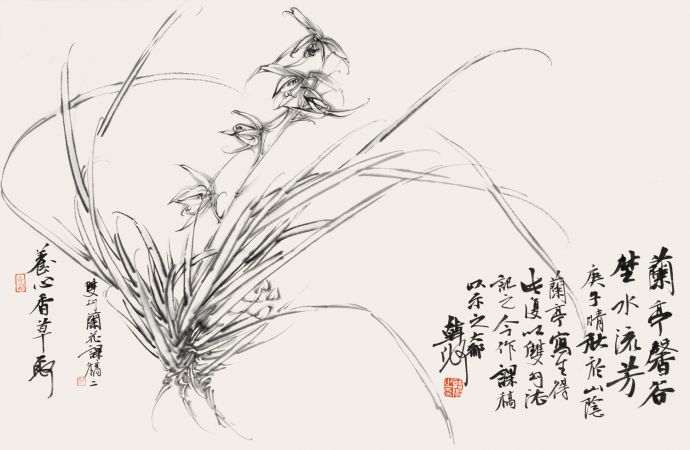 蘭亭馨谷
埜水流芳
庚子晴秋於山陰
蘭亭寫生得
此復以雙勾法
記之今作課稿
以示之
雙勾蘭花課稿二
養心香草